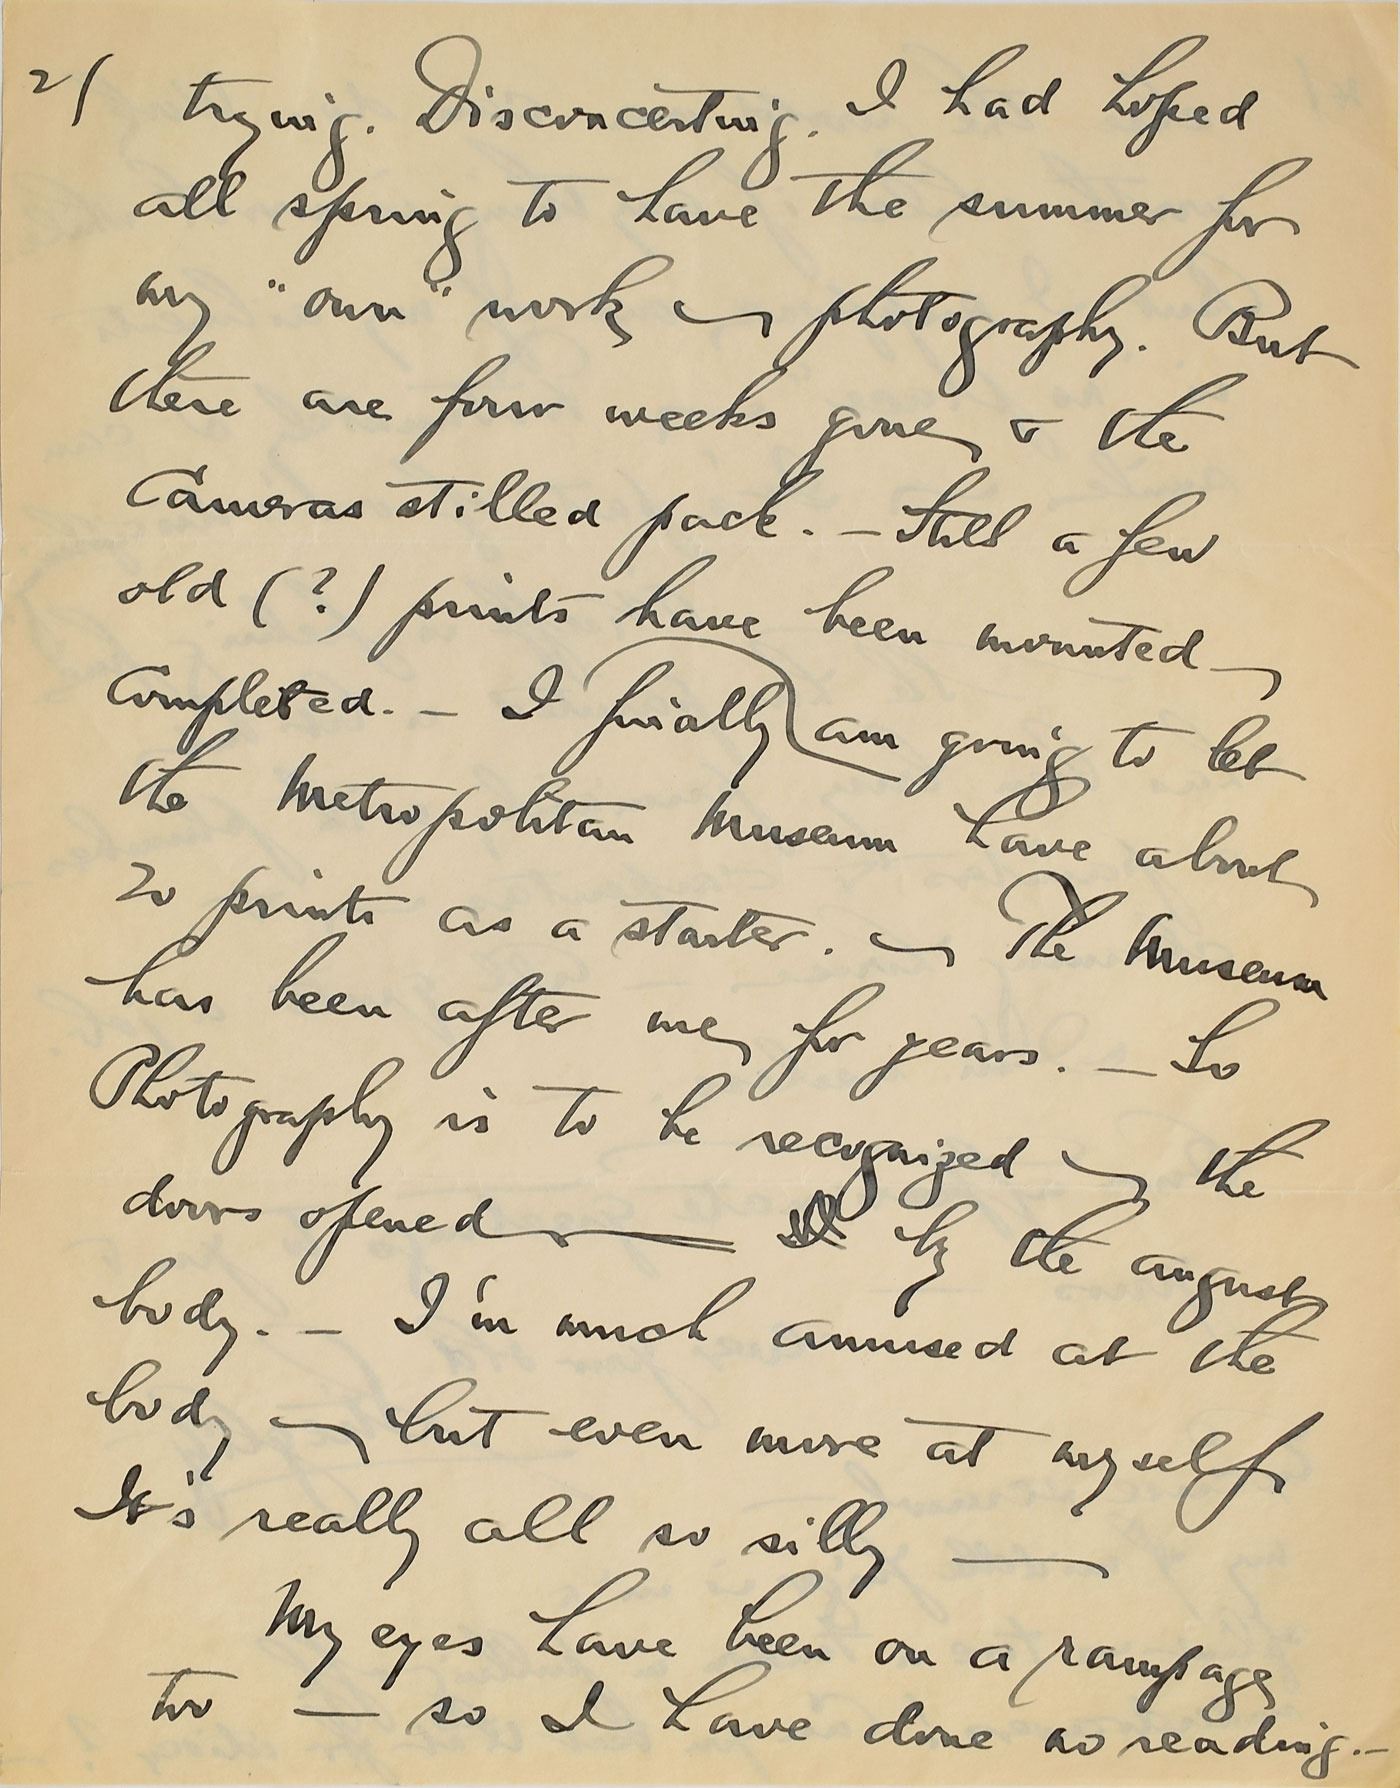 2/ trying. Disconcerting. I had hoped
all spring to have the summer for
my "own" work — photography. But
there are four weeks gone & the
Cameras stilled pack. — Still a few
old (?) prints have been mounted —
Completed. — I finally am going to let
the Metropolitan Museum have about
20 prints as a starter. — The Museum
has been after me for years. — So
Photography is to be recognized — the
doors opened — by the august
body. — I'm much amused at the
body — but even more at myself
It's really all so silly —
My eyes have been on a rampage
too — so I have done no reading. —